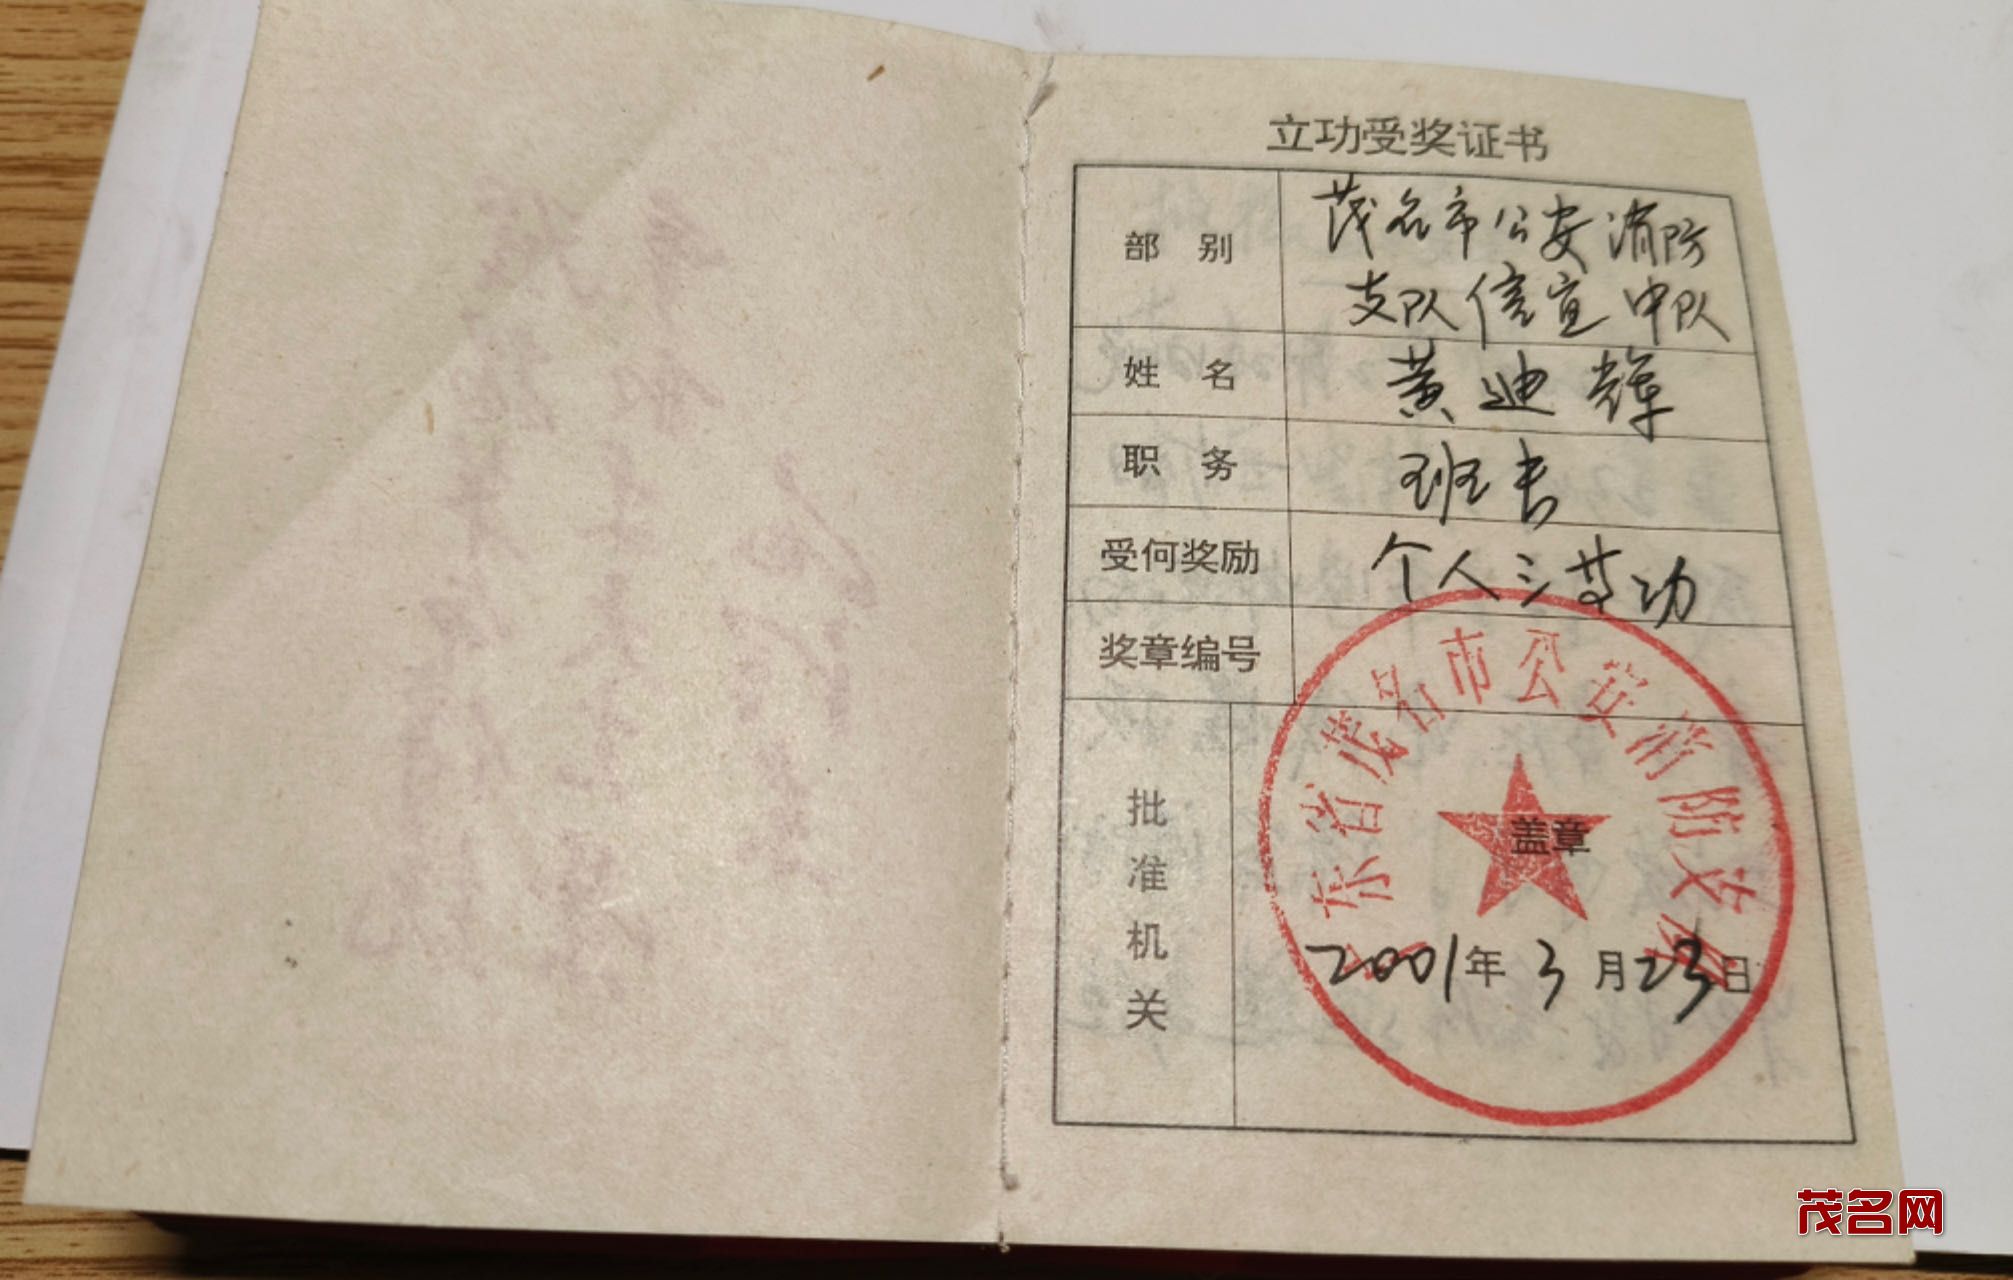 立功受奖证书
部 别 茂名市公安消防
支队信宜中队
姓 名 黄迪辉
职 务 班长
受何奖励 个人三等功
奖章编号
批准机关
广东省茂名市公安消防支队
盖章
2001年3月23日
茂名网